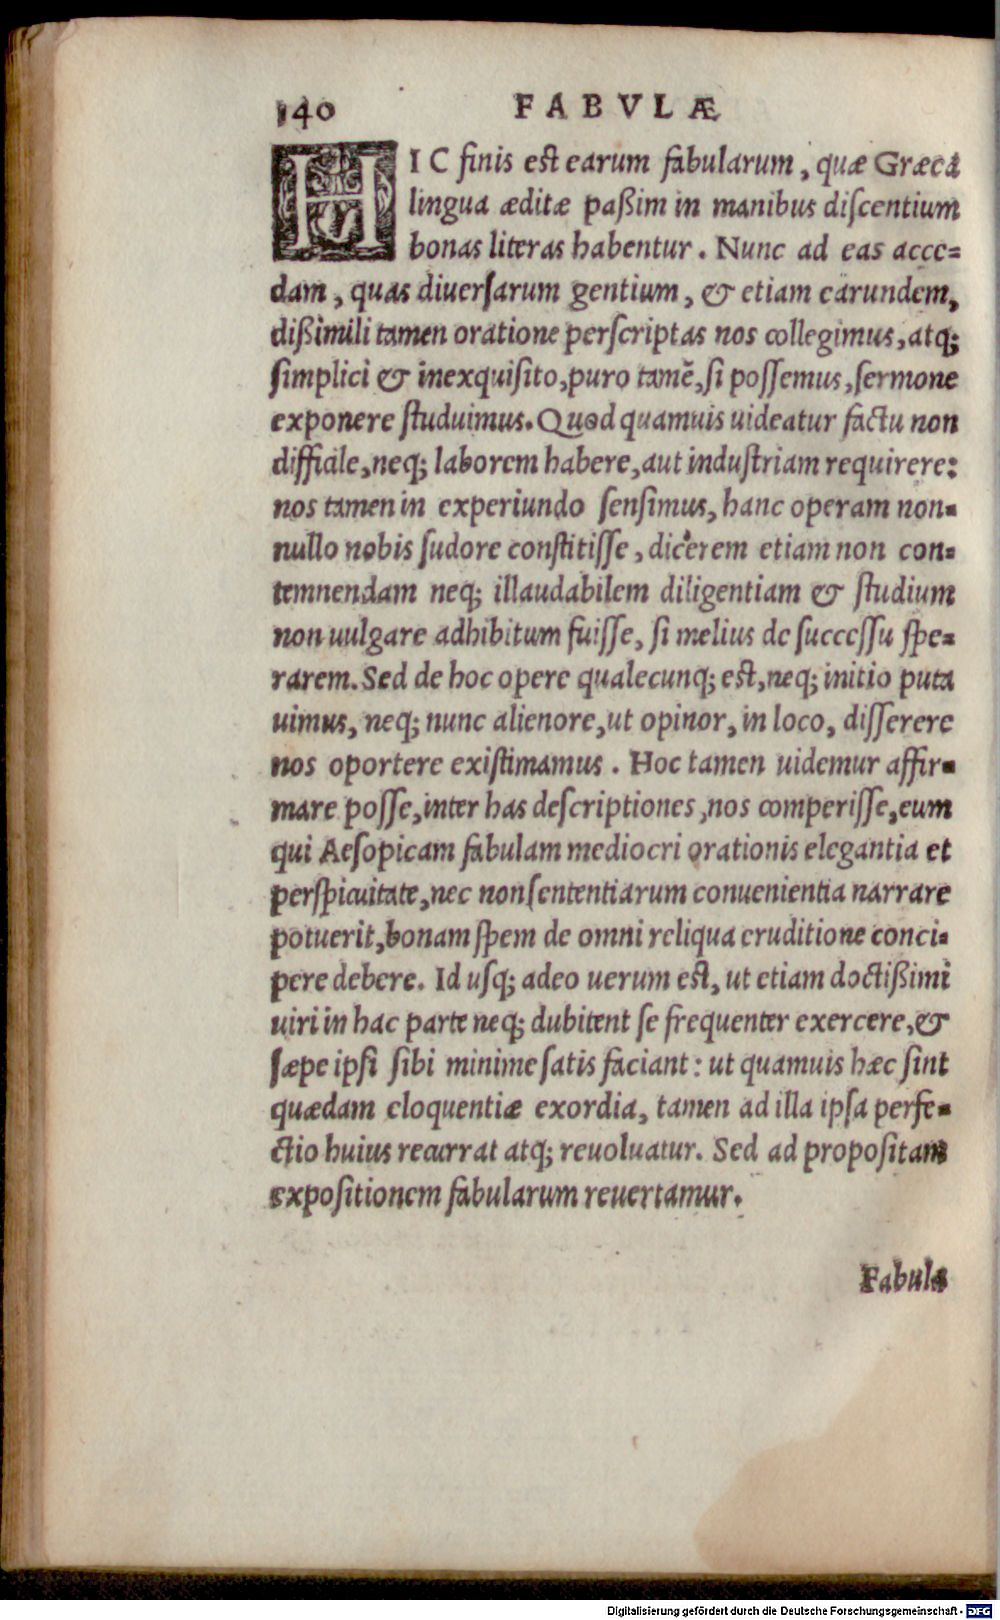 140 FABVLÆ
HIC finis est earum fabularum, quæ Græca
lingua æditæ paßim in manibus diſcentium
bonas literas habentur. Nunc ad eas acce=
dam, quas diuerſarum gentium, & etiam earundem,
dißimili tamen oratione perſcriptas nos collegimus, atq;
ſimplici & inexquiſito, puro tamẽ, ſi poſſemus, ſermone
exponere ſtuduimus. Quod quamuis uideatur factu non
difficile, neq; laborem habere, aut induſtriam requirere:
nos tamen in experiundo ſenſimus, hanc operam non=
nullo nobis ſudore conſtitiſſe, dicerem etiam non con=
temnendam neq; illaudabilem diligentiam & ſtudium
non uulgare adhibitum fuiſſe, ſi melius de ſucceſſu ſpe=
rarem. Sed de hoc opere qualecunq; eſt, neq; initio puta
uimus, neq; nunc alienore, ut opinor, in loco, diſſerere
nos oportere exiſtimamus. Hoc tamen uidemur affir=
mare poſſe, inter has deſcriptiones, nos comperiſſe, eum
qui Aeſopicam fabulam mediocri orationis elegantia et
perſpicuitate, nec non ſententiarum conuenientia narrare
potuerit, bonam ſpem de omni reliqua eruditione conci=
pere debere. Id uſq; adeo uerum eſt, ut etiam doctißimi
uiri in hac parte neq; dubitent ſe frequenter exercere, &
ſæpe ipſi ſibi minime ſatis faciant: ut quamuis hæc ſint
quædam eloquentiæ exordia, tamen ad illa ipſa perfe=
ctio huius recurrat atq; reuoluatur. Sed ad propoſitam
expoſitionem fabularum reuertamur.
Fabula
Digitalisierung gefördert durch die Deutsche Forschungsgemeinschaft - DFG